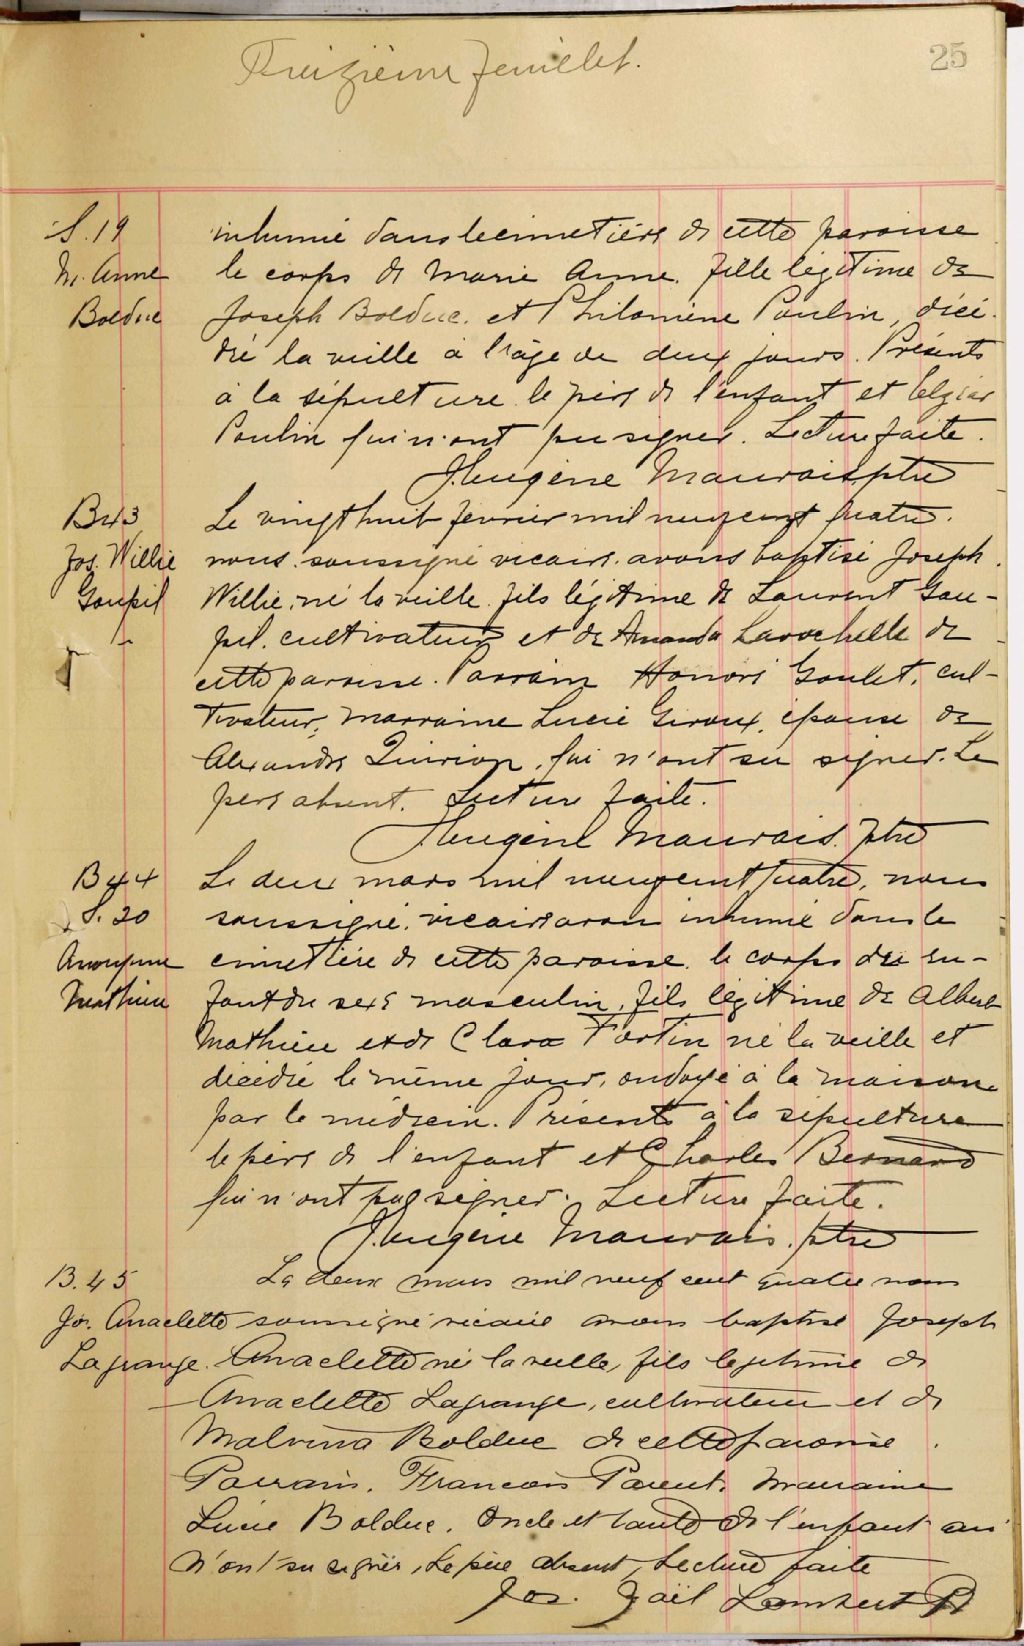 Treizième feuillet.
25
S. 19
M. Anne
Bolduc
inhumé dans le cimetière de cette paroisse
le corps de Marie Anne, fille légitime de
Joseph Bolduc et Philomène Poulin, décé-
dé la veille à l'âge de deux jours. Présents
à la sépulture le père de l'enfant et Elzéar
Poulin qui n'ont pu signer. Lecture faite.
J. Eugène Mauvais, ptre
B 43
Jos. Willie
Goupil
Le vingt huit février mil neuf cent quatre,
nous soussigné vicaire avons baptisé Joseph
Willie, né la veille fils légitime de Laurent Gou-
pil, cultivateur et de Amanda Larochelle de
cette paroisse. Parrain Honoré Goulet, cul-
tivateur, marraine Lucie Giroux, épouse de
Alexandre Quirion, qui n'ont su signer. Le
père absent. Lecture faite.
J. Eugène Mauvais, ptre
B 44
S. 20
Anonyme
Mathieu
Le deux mars mil neuf cent quatre, nous
soussigné, vicaire avons inhumé dans le
cimetière de cette paroisse le corps d'un en-
fant du sexe masculin, fils légitime de Albert
Mathieu et de Clara Fortin né la veille et
décédé le même jour, ondoyé à la maison
par le médecin. Présents à la sépulture
le père de l'enfant et Charles Bernard
qui n'ont pas signer. Lecture faite.
J. Eugène Mauvais, ptre
B. 45
Jos. Anaclette
Lagrange
Le deux mars mil neuf cent quatre nous
soussigné vicaire avons baptisé Joseph
Anaclette né la veille, fils legitime de
Anaclette Lagrange, cultivateur et de
Malvina Bolduc de cette paroisse.
Parrain, François Parent, marraine
Lucie Bolduc, oncle et tante de l'enfant qui
n'ont su signer, Le père absent, Lecture faite
Jos. Gaël Lambert Pt